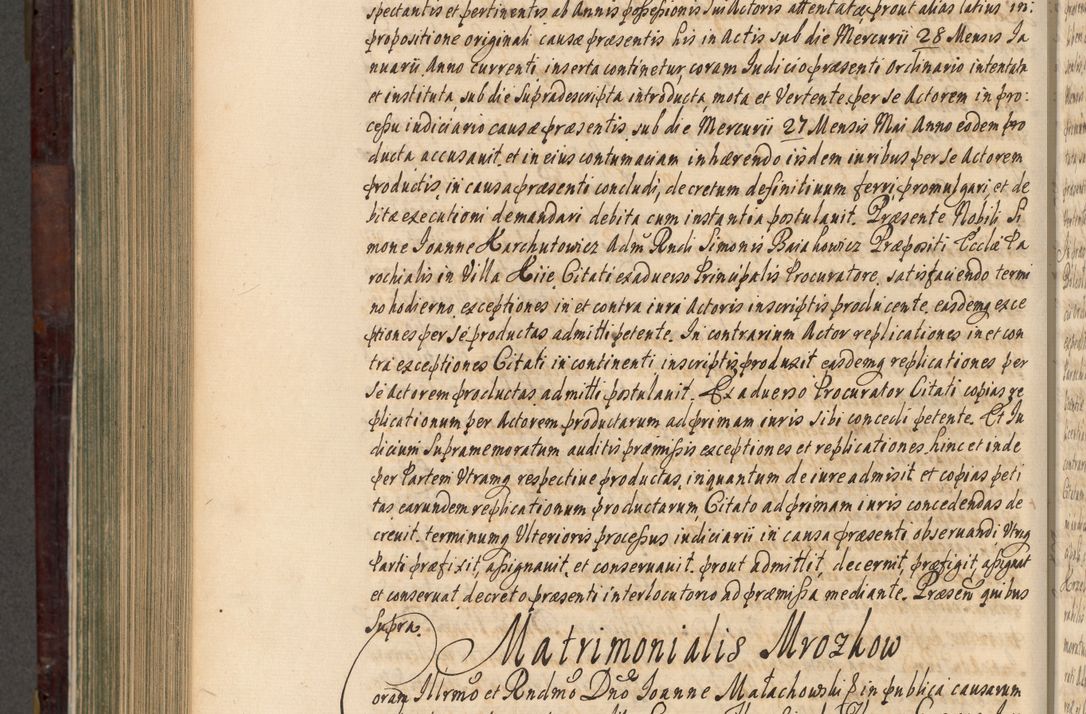 spectantis et pertinentis ab Annis possessionis sui Actoris attentatæ prout alias latius in:
propositione originali causæ præsentis his in Actis sub die Mercurii 28 Mensis Ia
nuarii Anno currenti inserta continetur, coram Iudicio præsenti Ordinario intentata
et instituta, sub die supradescripta introducta, mota et Vertente, per se Actorem in pro:
cessu iudiciario causæ præsentis, sub die Mercurii 27 Mensis Mai Anno eodem pro
ducta accusauit, et in eius contumaciam inhærendo iisdem iuribus per se Actorem
productis, in causa præsenti concludi, decretum definitiuum ferri, promulgari, et de
bitæ executioni demandari debita cum instantia postulauit. Præsente Nobili Si
mone Ioanne Karchutowicz Admũ Rndi Simonis Baiakowicz Præpositi Eccliæ Pa
rochialis in Villa Kiie, Citati ex aduerso Principalis Procuratore, satisfaciendo termi
no hodierno, exceptiones in et contra iura Actoris inscriptis producente, easdemq exce
ptiones per se productas admitti petente. In contrarium Actor replicationes in et con
tra exceptiones Citati in continenti inscriptis produxit, easdemq replicationes per
se Actorem productas admitti postulauit. Ex aduerso Procurator Citati copias re
plicationum per Actorem productarum ad primam iuris sibi concedi petente. Et Iu
dicium supramemoratum auditis præmissis exceptiones et replicationes, hinc et inde
per Partem Utramq respectiue productas, inquantum de iure admisit, et copias peti
tas earundem replicationum productarum Citato ad primam iuris concedendas de
creuit, terminumq Ulterioris processus iudiciarii in causa præsenti obseruandi, Utriq
Parti præfixit, assignauit, et conseruauit, prout admittit, decernit, præfigit, assignat
et conseruat, decreto præsenti interlocutorio ad præmissa mediante. Præsen quibus
supra.
Matrimonialis Mrozkow
oram Illrmo et Rndmo Dno Ioanne Małachowski in publica causarum